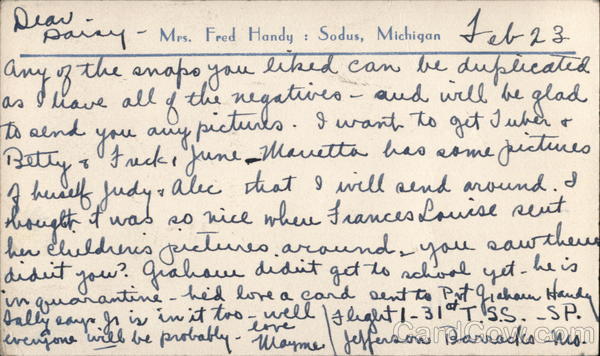 Dear Daisy -
Mrs. Fred Handy : Sodus, Michigan
Feb 23
Any of the snaps you liked can be duplicated
as I have all of the negatives - and will be glad
to send you any pictures. I want to get Tuber &
Betty & Fred, June - Mauetta has some pictures
of herself Judy & Alec that I will send around. I
thought it was so nice when Frances Louise sent
her children's pictures around - you saw them
didn't you? Graham didn't get to school yet - he is
in quarantine - he'd love a card sent to Pvt Graham Handy
Sally says Jr is in it too - well
Flight 1 - 31st T.S.S. - S.P.
everyone will be probably - love
Mayme
Jefferson Barracks - Mo.
CardCow.com